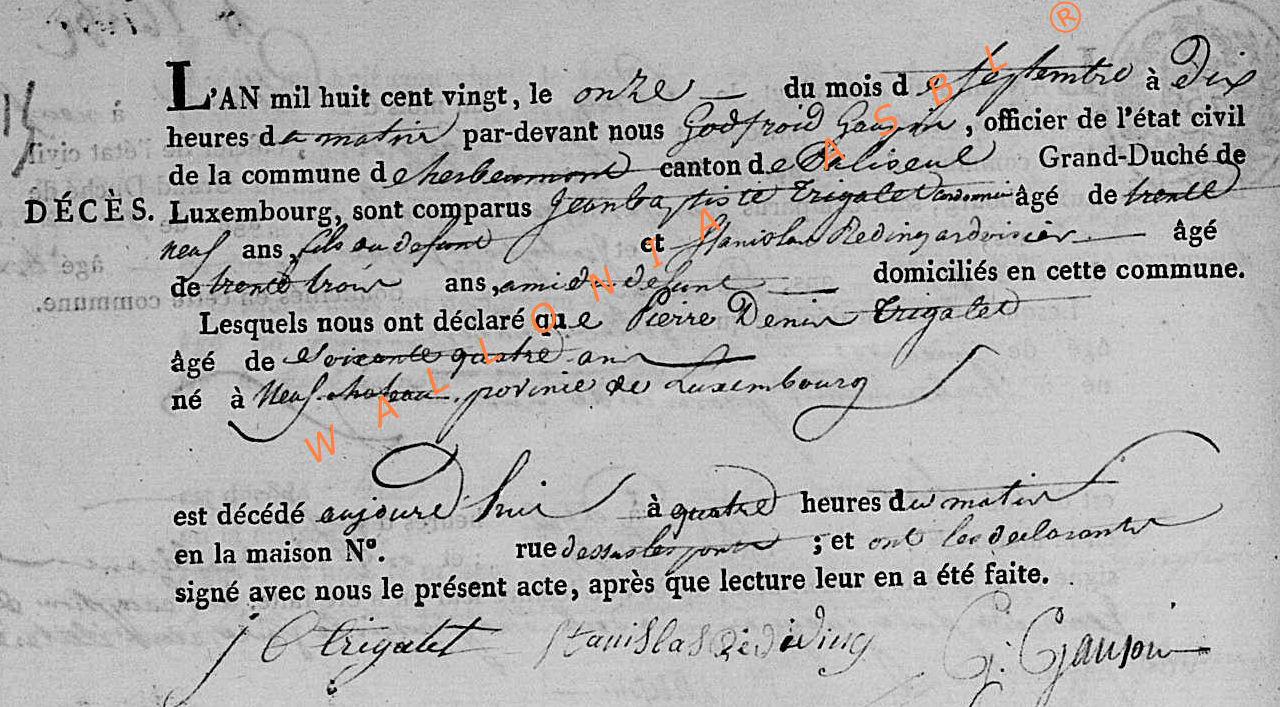 L'AN mil huit cent vingt, le onze du mois de septembre à dix
heures du matin par-devant nous Godfroid Gaupin, officier de l'état civil
de la commune d'herbeumont canton de Paliseul Grand-Duché de
DÉCÈS. Luxembourg, sont comparus Jean baptiste Trigalet âgé de trente
neuf ans, fils au defunt et Stanislas Reding ardoisier âgé
de trente trois ans, ami du defunt domiciliés en cette commune.
Lesquels nous ont déclaré que Pierre Denis Trigalet
âgé de soixante quatre ans
né à Neufchateau province de Luxembourg
est décédé aujourd'hui à quatre heures du matin
en la maison Nº. rue ; et ont les declarants
signé avec nous le présent acte, après que lecture leur en a été faite.
J Trigalet Stanislas Réding G. Gaupin
WALLONIA ASBL ®